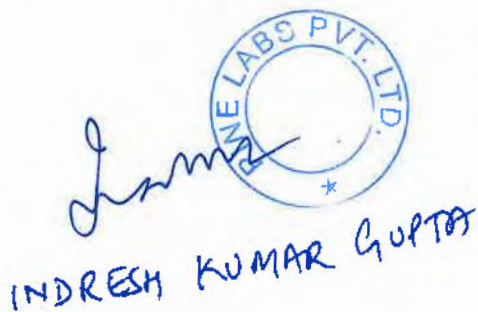 LABS PVT. LTD.
INDRESH KUMAR GUPTA